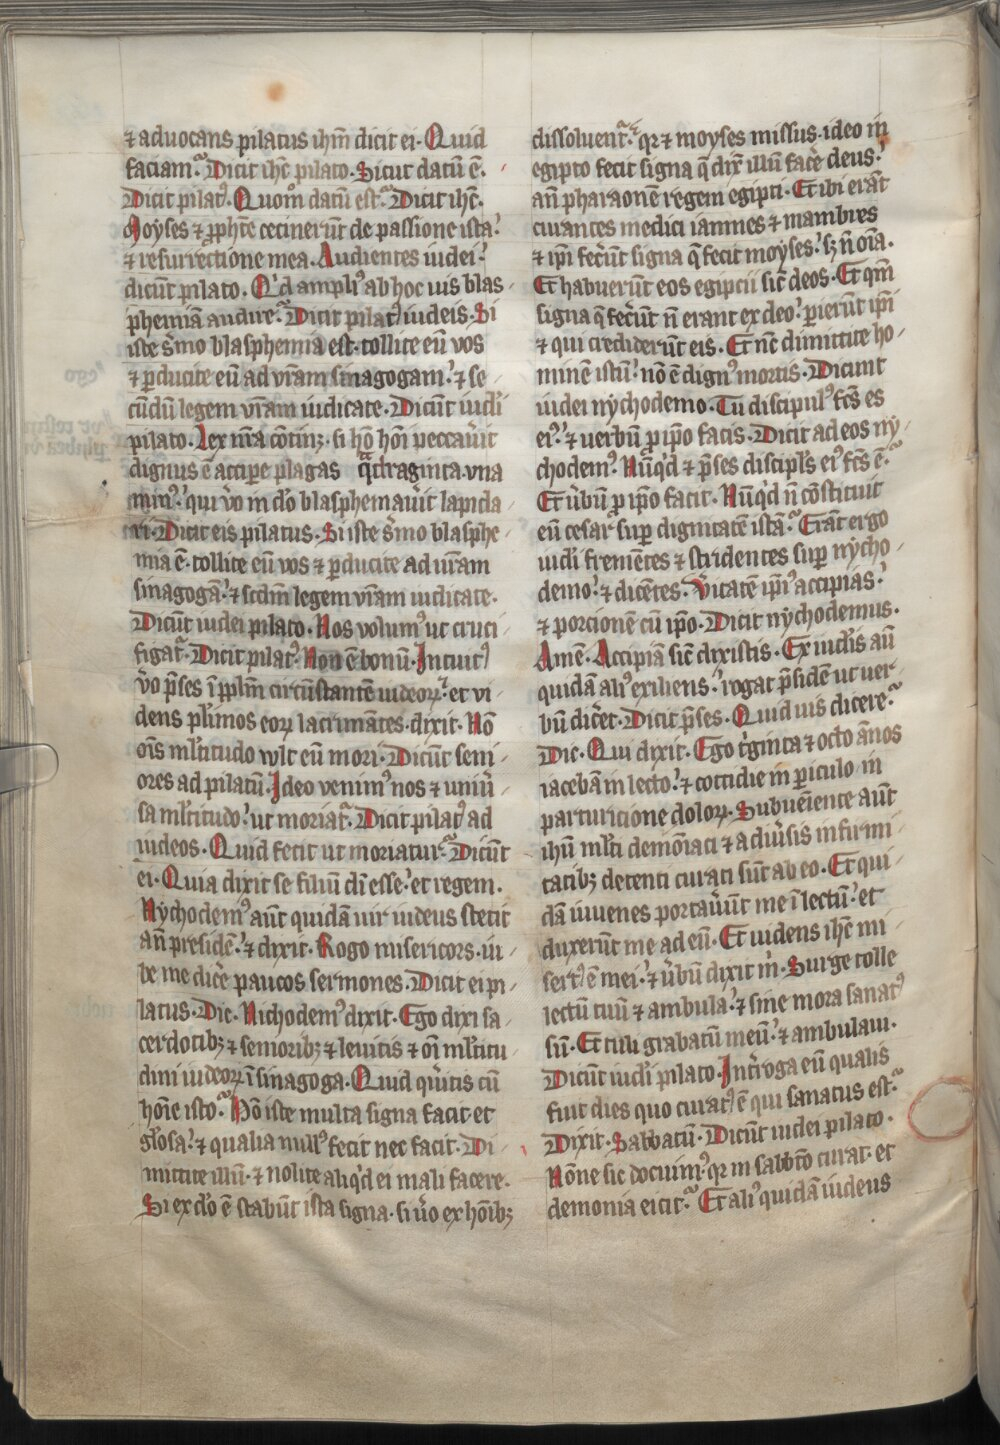 ⁊ aduocans pilatus ihm̄ dicit ei. Quid
faciam? Dicit ihc̄ pilato. Sicut datū ē.
Dicit pilat⁹. Quom̊ datū est? Dicit ihc̄.
Moyses ⁊ ꝓph̄te cecinerūt de passione ista.
⁊ resurrectione mea. Audientes iudei.
dicūt pilato. Qͥd ampli⁹ ab hoc uis blas-
phemiā audire? Dicit pilat⁹ iudeis. Si
iste s̄mo blasphemia est. tollite eū vos
⁊ ꝑducite eū ad vr̄am sinagogam. ⁊ se-
cūdū legem vr̄am iudicate. Dicūt iudi
pilato. Lex nr̄a cōtinꝫ. si hō hōi peccau̓it
dignus ē accipe plagas qͣdraginta vna
min⁹. qui v̊o in dō blasphemau̓it lapida-
ri. Dicit eis pilatus. Si iste s̄mo blasphe-
mia ē. tollite eū vos ⁊ ꝑducite ad vr̄am
sinagogā. ⁊ scdm̄ legem vr̄am iudicate.
Dicūt iudei pilato. Nos volum⁹ ut cruci-
figat̄. Dicit pilat⁹. Non ē bonū. Intuit⁹
v̊o p̄ses ī ꝓplm̄ circūstantem iudeoꝝ. et vi-
dens pl̄imos eoꝝ lacrimātes. dixit. Nō
oīs ml̄titudo vult eū mori. Dicūt seni-
ores ad pilatū. Ideo venim⁹ nos ⁊ uniu̓-
sa ml̄titudo. ut moriat̄. Dicit pilat⁹ ad
iudeos. Quid fecit ut moriatur? Dicūt
ei. Quia dixit se filiū dī esse. et regem.
Nychodem⁹ aūt quidā uir iudeus stetit
an̄ presidē. ⁊ dixit. Rogo misericors. iu-
be me dic̄e paucos sermones. Dicit ei pi-
latus. Dic. Nichodem⁹ dixit. Ego dixi sa-
cerdotibꝫ ⁊ senioribꝫ ⁊ leuitis ⁊ oī ml̄titu-
dini iudeoꝝ ī sinagoga. Quid qu̓itis cū
hoīe isto? Hō iste multa signa facit et
gl̄osa. ⁊ qualia null⁹ fecit nec facit. Di-
mittite illū. ⁊ nolite aliqͥd ei mali facere.
Si ex dō ē stabūt ista signa. si u̓o ex hōibꝫ
dissoluent̄. qr̄ ⁊ moyses missus. ideo in
egipto fecit signa q̄ dix̄ illū fac̄e deus.
an̄ pharaonē regem egipti. Et ibi erāt
curantes medici iamnes ⁊ mambres
⁊ ip̄i fec̄ūt signa q̄ fecit moyses. sꝫ n̄ oīa.
Et habuerūt eos egiptii sic̄ deos. Et qm̄
signa q̄ fec̄ūt n̄ erant ex deo. ꝑierūt ip̄i
⁊ qui crediderūt eis. Et nc̄ dimittite ho-
minē istū. nō ē dign⁹ mortis. Dicunt
iudei nychodemo. Tu discipul⁹ fc̄s es
ei⁹. ⁊ uerbū ꝓ ip̄o facis. Dicit ad eos ny-
chodem⁹. Nūqͥd ⁊ p̄ses discipl̄s ei⁹ fc̄s ē?
Et u̓bū ꝓ ip̄o facit. Nūqͥd n̄ cōstituit
eū cesar suꝑ dignitatē istā? Erāt ergo
iudi frementes ⁊ stridentes suꝑ nycho-
demo. ⁊ dicētes. V̓itatē ip̄i⁹ accipias.
⁊ porcionē cū ip̄o. Dicit nychodemus.
Amē. Accipiā sic̄ dixistis. Ex iudīs aū
quidā ali⁹ exiliens. rogat p̄sidē ut uer-
bū dic̄et. Dicit p̄ses. Quid uis dicere?
Dic. Qui dixit. Ego tͥginta ⁊ octo ānos
iacebā in lecto. ⁊ cottidie in ꝑiculo in
parturicione doloꝝ. Subueniente aūt
ihū ml̄ti demōiaci ⁊ a diu̓sis infirmi-
tatibꝫ detenti curati sūt ab eo. Et qui-
dā iuuenes portau̓ūt me ī lectū. et
duxerūt me ad eū. Et uidens ihc̄ mi-
sert⁹ ē mei. ⁊ u̓bū dixit m̄. Surge tolle
lectū tuū ⁊ ambula. ⁊ sine mora sanat⁹
sū. Et tuli grabatū meū. ⁊ ambulaui.
Dicūt iudi pilato. Int̓roga eū qualis
fuit dies quo curat⁹ ē qui sanatus est?
Dixit. Sabbatū. Dicūt iudei pilato.
Nōne sic docuim⁹. qr̄ in sabb̄to curat. et
demonia eicit? Et ali⁹ quidā iudeus